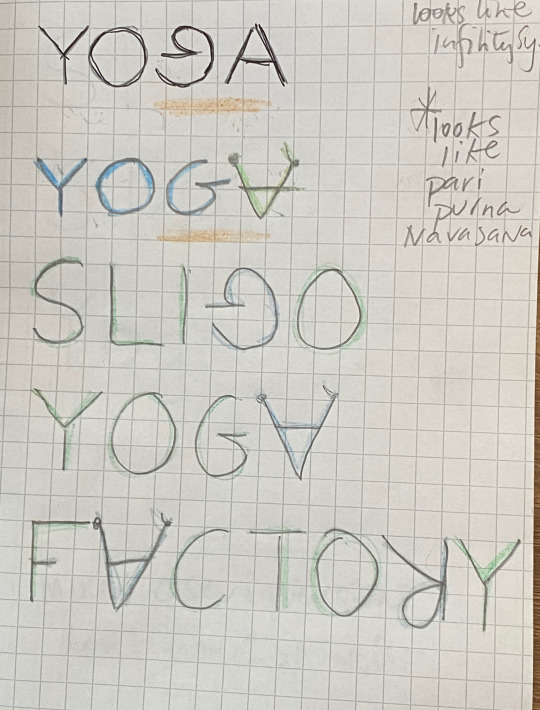 YOGA
YOGA
SLIGO
YOGA
FACTORY
looks like
infinity sy.
*looks
like
pari
purna
Navasana